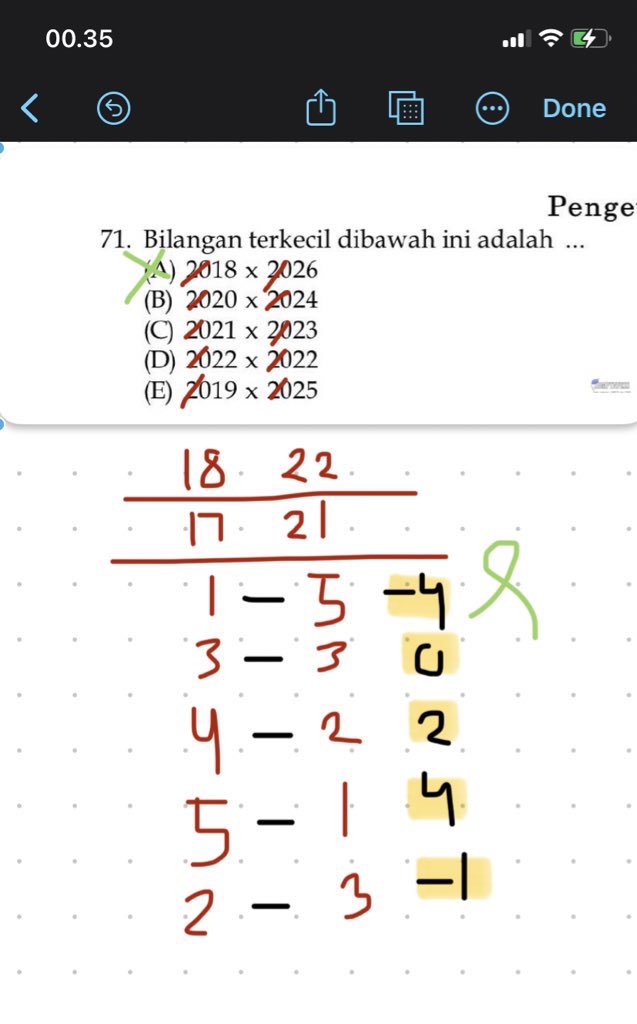 00.35
Done
Penge
71. Bilangan terkecil dibawah ini adalah ...
(A) 2018 x 2026
(B) 2020 x 2024
(C) 2021 x 2023
(D) 2022 x 2022
(E) 2019 x 2025
18 22
17 21
1 – 5 -4
3 – 3 0
4 – 2 2
5 – 1 4
2 – 3 -1